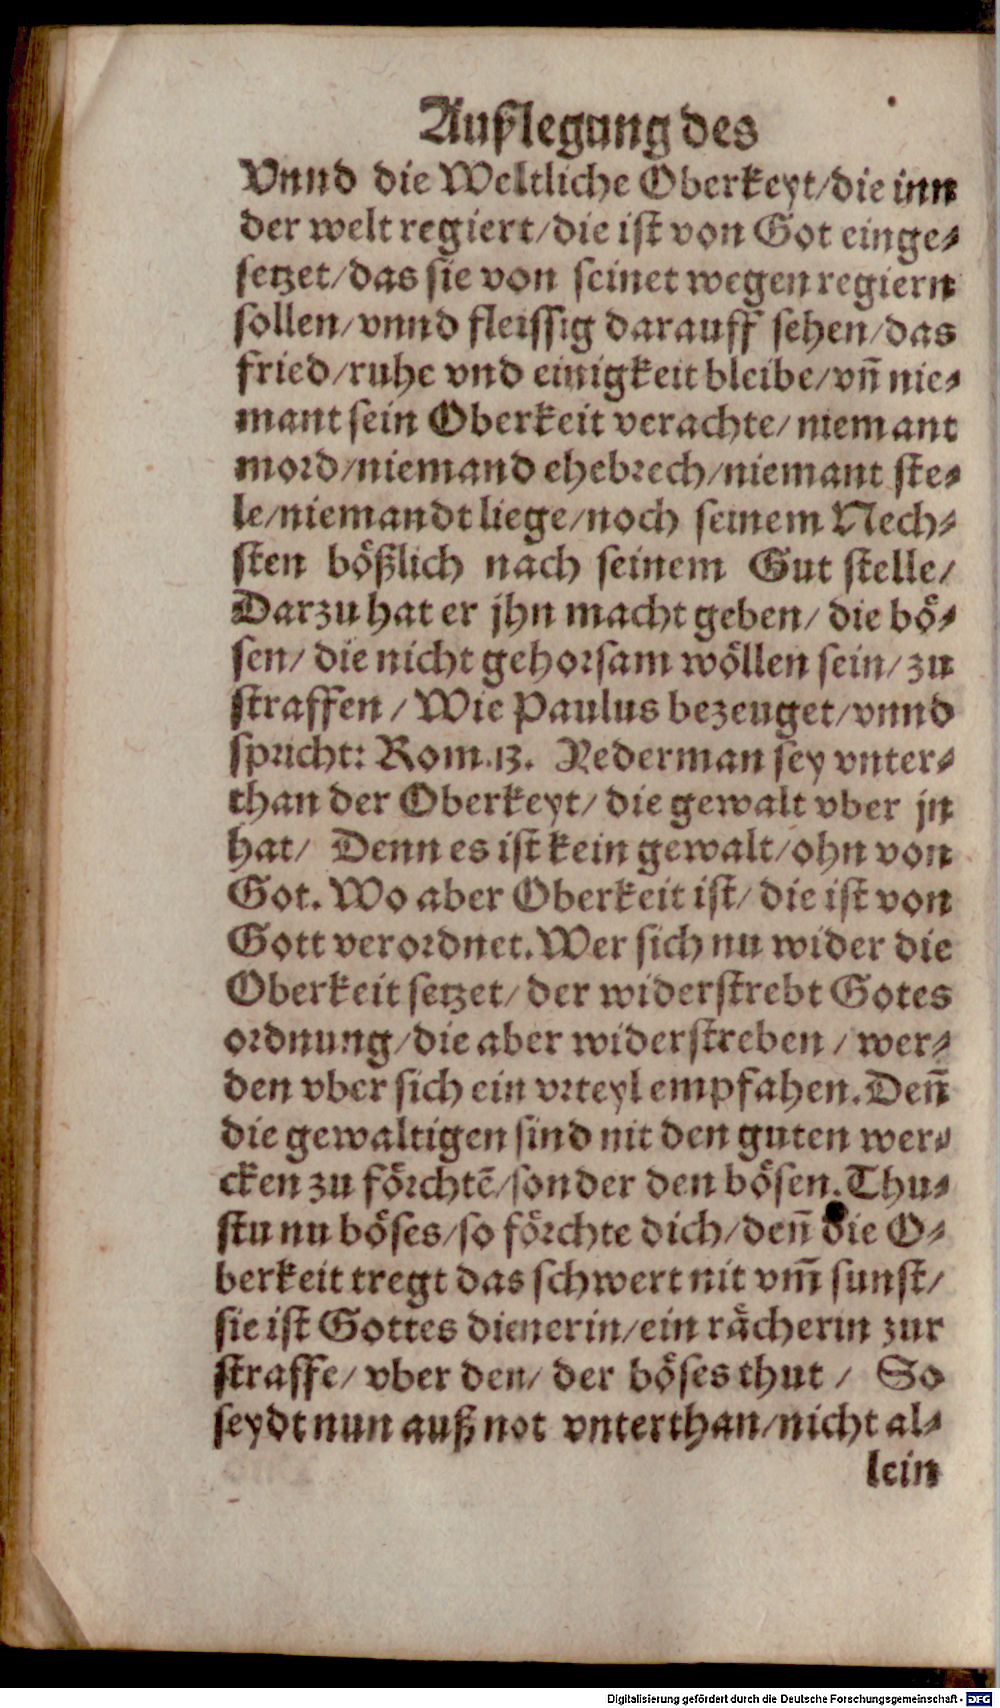 Außlegung des
Vnnd die Weltliche Oberkeyt/die inn
der welt regiert/die ist von Got einge-
setzet/das sie von seinet wegen regiern
sollen/vnnd fleissig darauff sehen/das
fried/ruhe vnd einigkeit bleibe/vñ nie-
mant sein Oberkeit verachte/niemant
mord/niemand ehebrech/niemant ste-
le/niemandt liege/noch seinem Nech-
sten bößlich nach seinem Gut stelle/
Darzu hat er jhn macht geben/die bö-
sen/die nicht gehorsam wöllen sein/zu
straffen/Wie Paulus bezeuget/vnnd
spricht: Rom.13. Yederman sey vnter-
than der Oberkeyt/die gewalt vber jn
hat/ Denn es ist kein gewalt/ohn von
Got. Wo aber Oberkeit ist/die ist von
Gott verordnet. Wer sich nu wider die
Oberkeit setzet/der widerstrebt Gotes
ordnung/die aber widerstreben/wer-
den vber sich ein vrteyl empfahen. Deñ
die gewaltigen sind nit den guten wer-
cken zu förchtẽ/sonder den bösen. Thu-
stu nu böses/so förchte dich/deñ die O-
berkeit tregt das schwert nit vm̃ sunst/
sie ist Gottes dienerin/ein rächerin zur
straffe/vber den/der böses thut/ So
seydt nun auß not vnterthan/nicht al-
lein
Digitalisierung gefördert durch die Deutsche Forschungsgemeinschaft - DFG